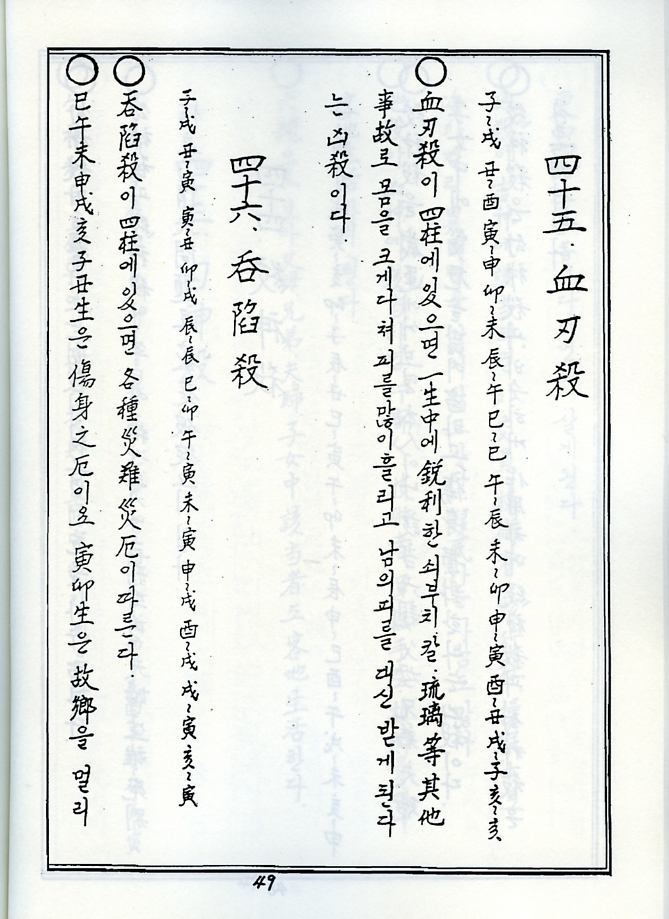 四十五. 血刃殺
子~戌 丑~酉 寅~申 卯~未 辰~午 巳~巳 午~辰 未~卯 申~寅 酉~丑 戌~子 亥~亥.
○ 血刃殺이 四柱에 있으면 一生中에 銳利한 쇠부치 칼·琉璃等 其他
事故로 몸을 크게다쳐 피를 많이흘리고 남의피를 대신 받게된다
는 凶殺이다.
四十六. 呑陷殺
子~戌 丑~寅 寅~丑 卯~戌 辰~辰 巳~卯 午~寅 未~寅 申~戌 酉~戌 戌~寅 亥~寅
○ 呑陷殺이 四柱에 있으면 各種災難災厄이따른다.
○ 巳午未申戌亥子丑生은 傷身之厄이오 寅卯生은 故鄕을 멀리
49